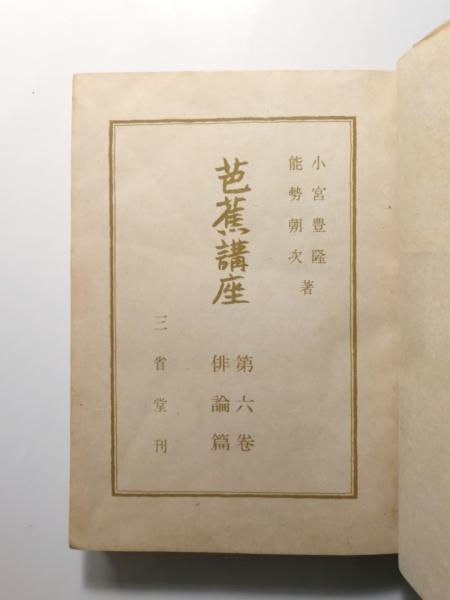 小宮豊隆
能勢朝次 著
芭蕉講座
第六卷
俳論篇
三省堂刊